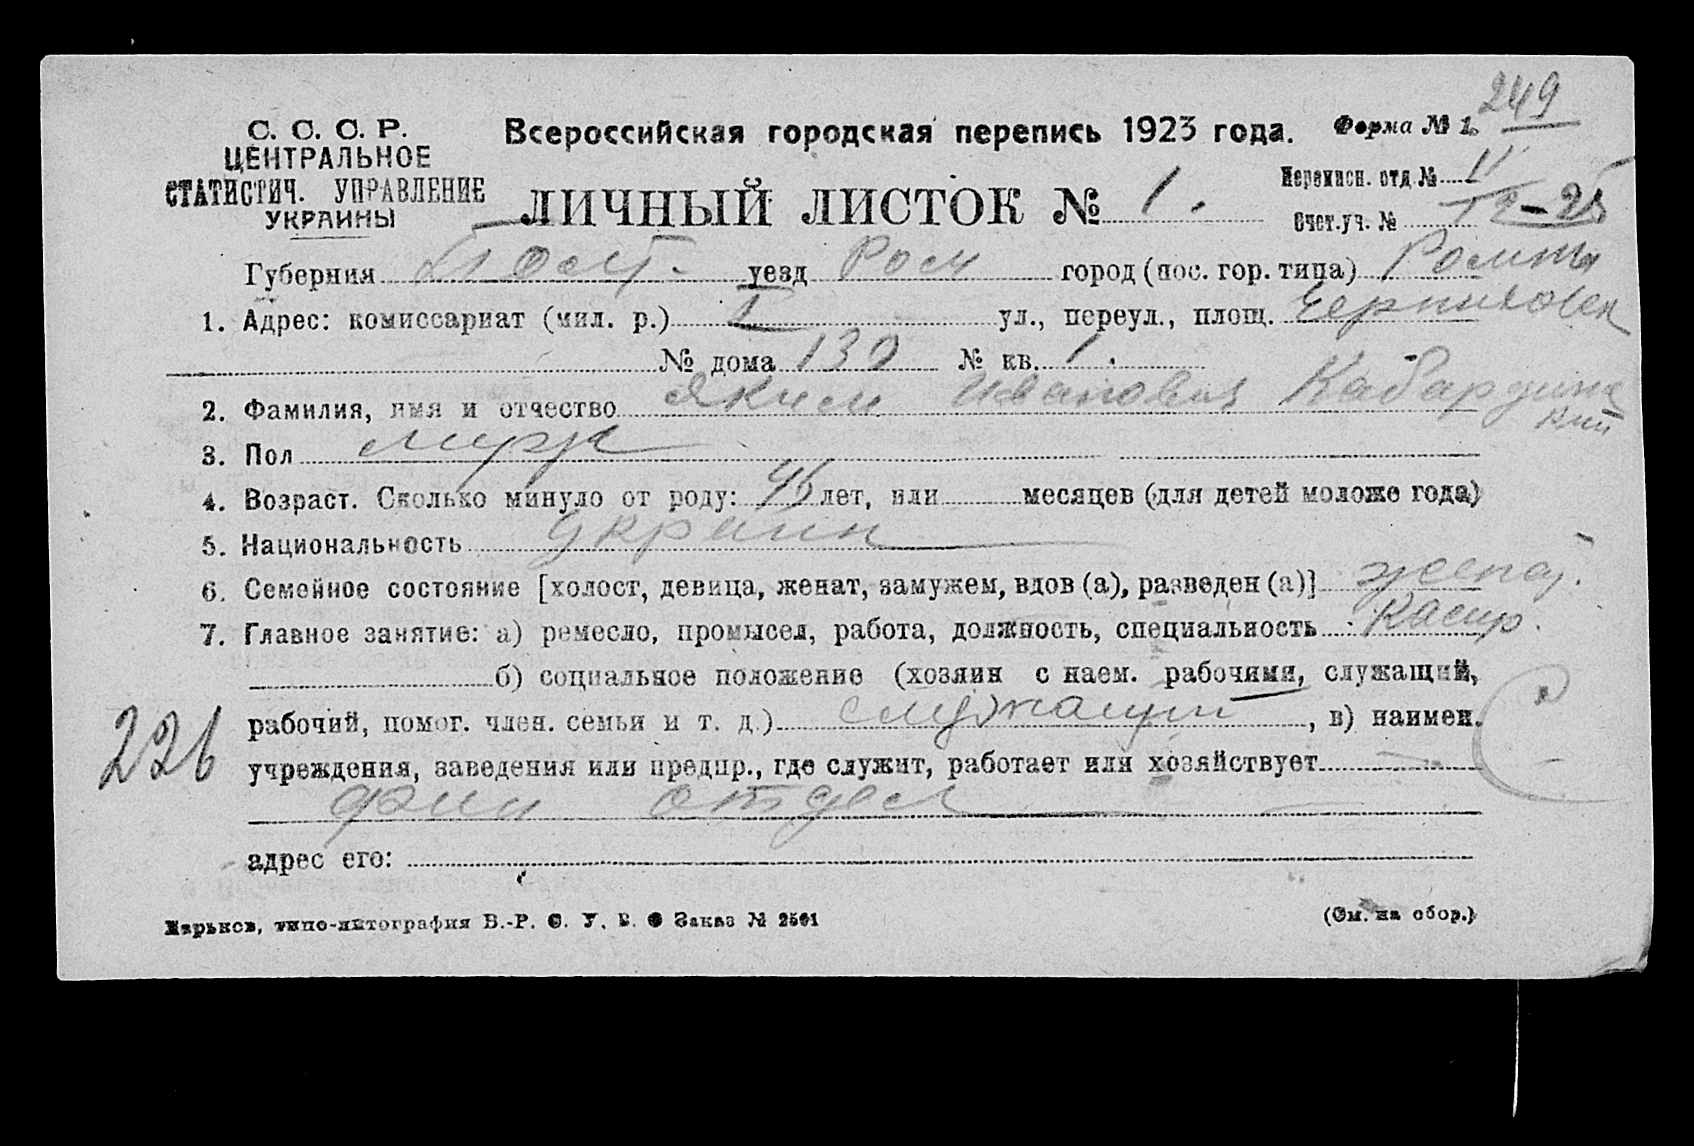 249
С. С. С. Р.
ЦЕНТРАЛЬНОЕ
СТАТИСТИЧ. УПРАВЛЕНИЕ
УКРАИНЫ
Всероссийская городская перепись 1923 года.
Форма № 1.
ЛИЧНЫЙ ЛИСТОК № 1.
Переписн. отд. № II
Счет.уч. № 12-25
Губерния Полт. уезд Ром город (пос. гор. типа) Ромны
1. Адрес: комиссариат (мил. р.) I ул., переул., площ. Черниговск
№ дома 130 № кв. 1.
2. Фамилия, имя и отчество Яким Иванович Кабардин
кий
3. Пол муж
4. Возраст. Сколько минуло от роду: 46 лет, или месяцев (для детей моложе года)
5. Национальность украин
6. Семейное состояние [холост, девица, женат, замужем, вдов (а), разведен (а)] женат.
7. Главное занятие: а) ремесло, промысел, работа, должность, специальность Касир.
б) социальное положение (хозяин с наем. рабочими, служащий,
рабочий, помог. член. семьи и т. д.) служащий, в) наимен.
226
учреждения, заведения или предпр., где служит, работает или хозяйствует
фин отдел
адрес его:
Харьков, типо-литография В.-Р. С. У. В. Заказ № 2501
(См. на обор.)